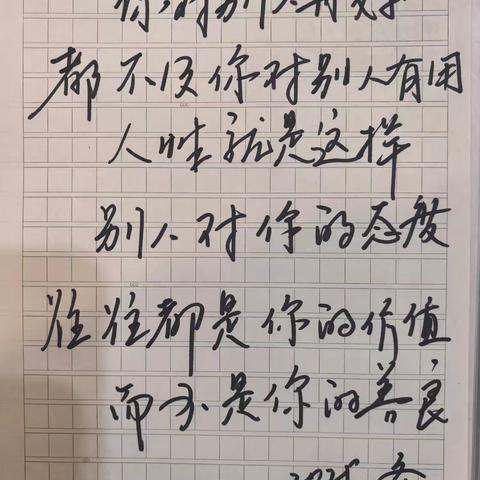 你对别人再好
都不及你对别人有用
人性就是这样
别人对你的态度
往往都是你的价值
而不是你的善良